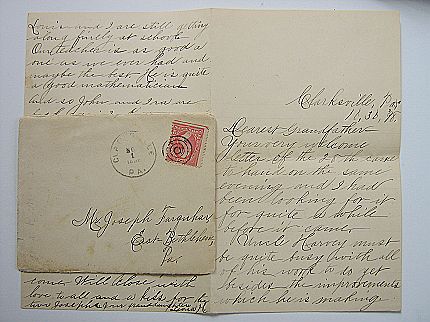 Louis and I are still getting
along finely at school.
Our teacher is as good a
one as we ever had and
maybe the best. He is quite
a good mathematician
and so John and Ira are
Clarksville, Pa.
Dearest Grandfather
Your very welcome
letter of the 25th came
to hand on the same
evening and I had
been looking for it
for quite a while
before it came.
Uncle Harvey must
be quite busy with all
of his work to do yet
besides the improvements
which he is making.
CLARKSVILLE
1
PA.
Mr Joseph Farquhar
East Bethlehem
Pa.
come. Will close with
love to all and a kiss for the
two Josephs